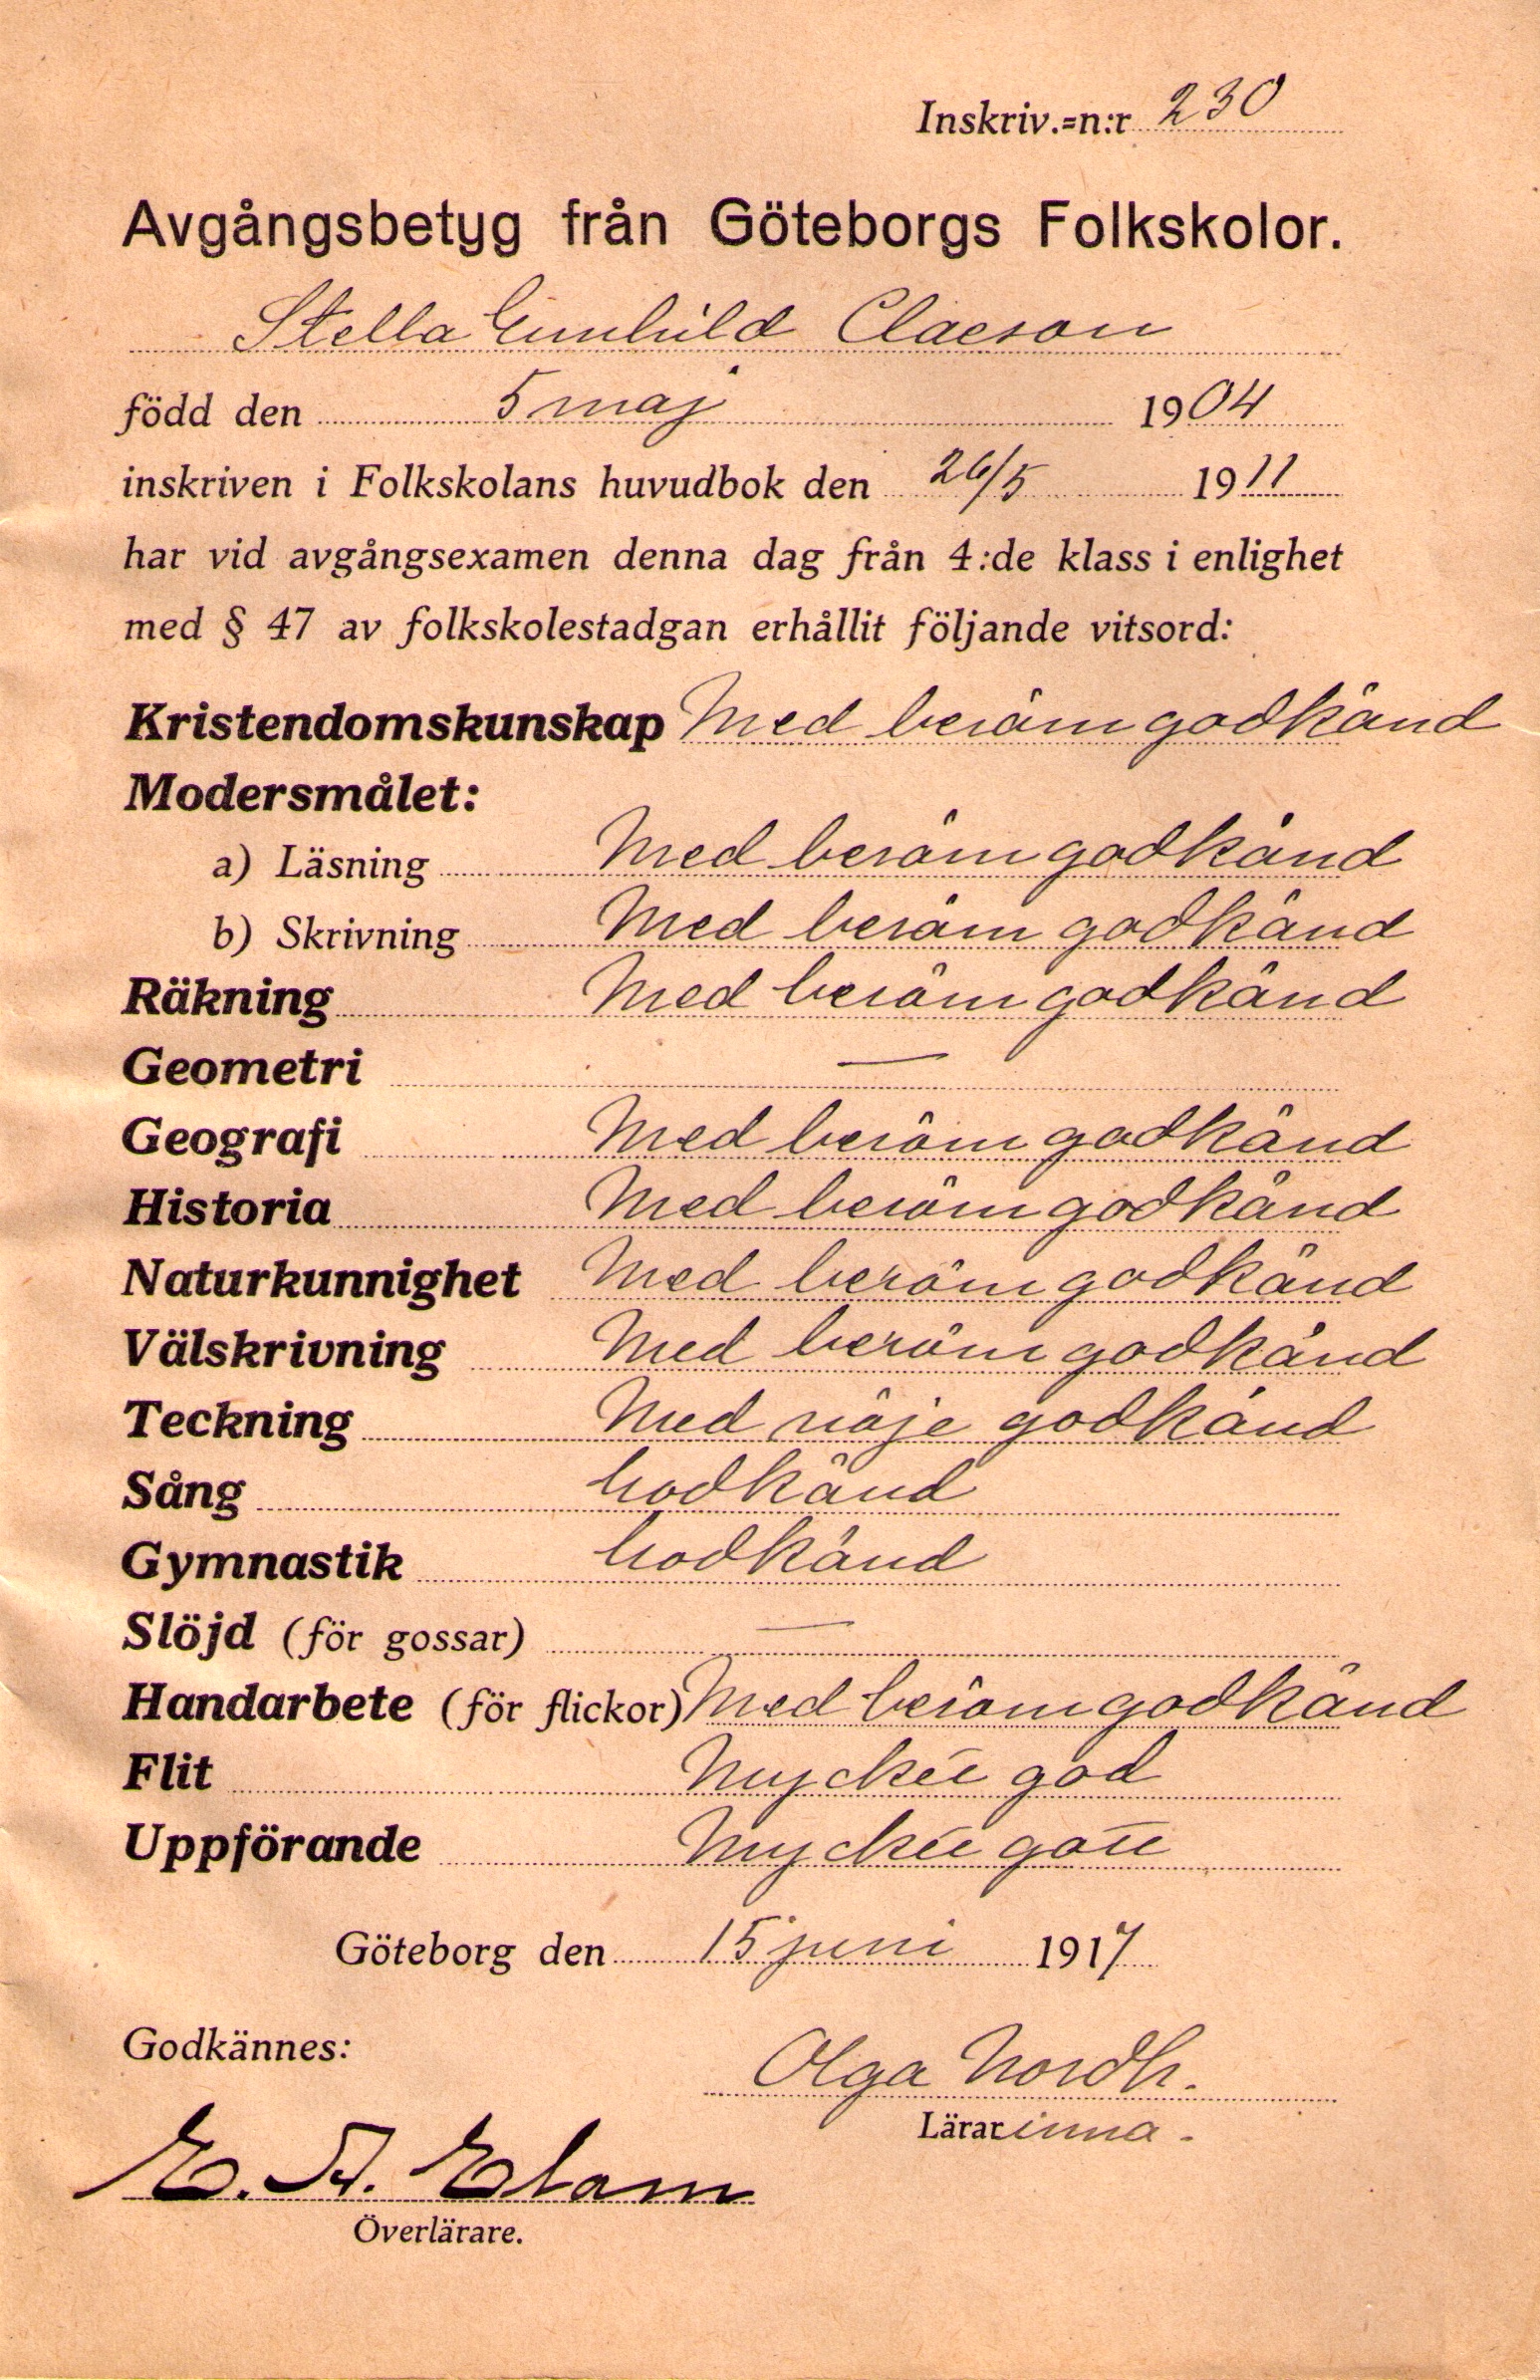 Inskriv.=n:r 230
Avgångsbetyg från Göteborgs Folkskolor.
Stella Gunhild Claeson
född den 5 maj 1904
inskriven i Folkskolans huvudbok den 26/5 1911
har vid avgångsexamen denna dag från 4:de klass i enlighet
med § 47 av folkskolestadgan erhållit följande vitsord:
Kristendomskunskap Med beröm godkänd
Modersmålet:
a) Läsning Med beröm godkänd
b) Skrivning Med beröm godkänd
Räkning Med beröm godkänd
Geometri —
Geografi Med beröm godkänd
Historia Med beröm godkänd
Naturkunnighet Med beröm godkänd
Välskrivning Med beröm godkänd
Teckning Med nöje godkänd
Sång Godkänd
Gymnastik Godkänd
Slöjd (för gossar) —
Handarbete (för flickor) Med beröm godkänd
Flit Mycket god
Uppförande Mycket gott
Göteborg den 15 juni 1917
Godkännes:
Olga Nordh.
Lärarinna.
E. A. Elam
Överlärare.